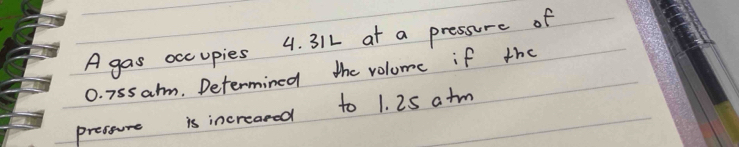 A gas occupies 4.31L at a pressure of
0.755 atm. Determined the volume if the
pressure is increased to 1.25 atm